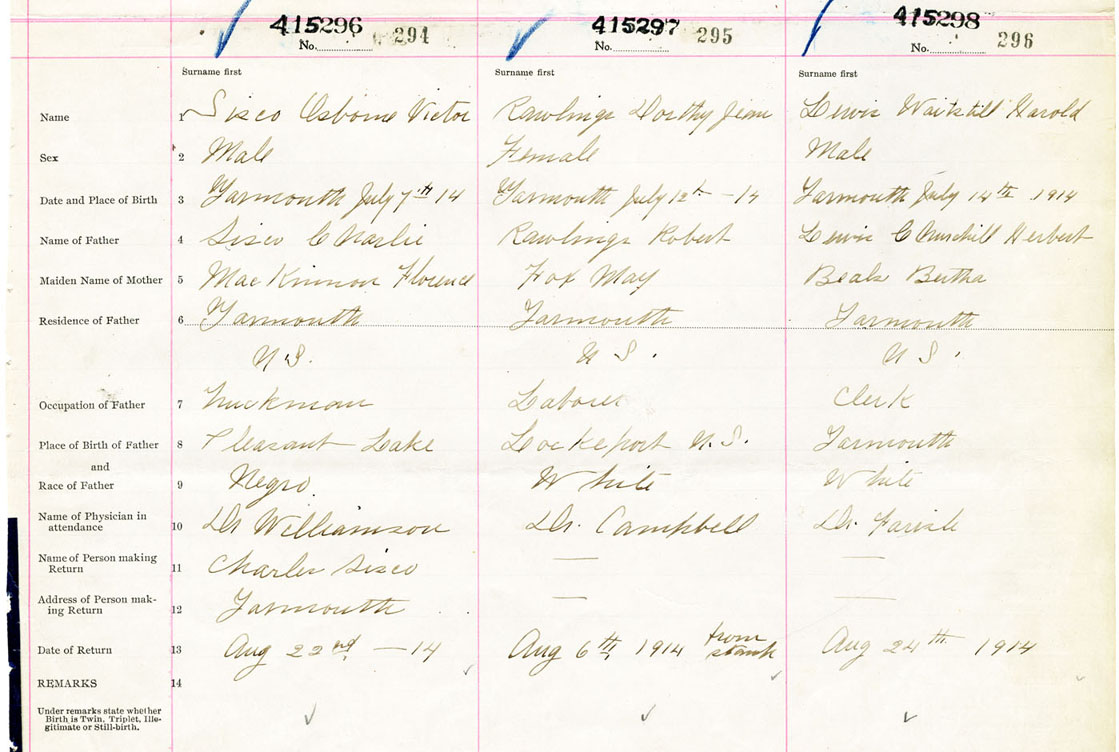 415296 415297 415298
No. 294 No. 295 No. 296
Surname first Surname first Surname first
Name 1 Sisco Osborne Victor Rawlings Dorthy Jean Lewis Waitstill Harold
Sex 2 Male Female Male
Date and Place of Birth 3 Yarmouth July 7th 14 Yarmouth July 12th - 14 Yarmouth July 14th 1914
Name of Father 4 Sisco Charlie Rawlings Robert Lewis Churchill Herbert
Maiden Name of Mother 5 MacKinnon Florence Fox May Beals Bertha
Residence of Father 6 Yarmouth Yarmouth Yarmouth
N.S. N S. N S.
Occupation of Father 7 Truckman Laborer Clerk
Place of Birth of Father 8 Pleasant Lake Lockeport N.S. Yarmouth
and
Race of Father 9 Negro White White
Name of Physician in
attendance 10 Dr Williamson Dr. Campbell Dr.
Name of Person making
Return 11 Charles Sisco —— ——
Address of Person mak-
ing Return 12 Yarmouth —— ——
Date of Return 13 Aug 22nd — 14 Aug 6th, 1914 from Aug 24th 1914
REMARKS 14
Under remarks state whether
Birth is Twin, Triplet, Ille-
gitimate or Still-birth.